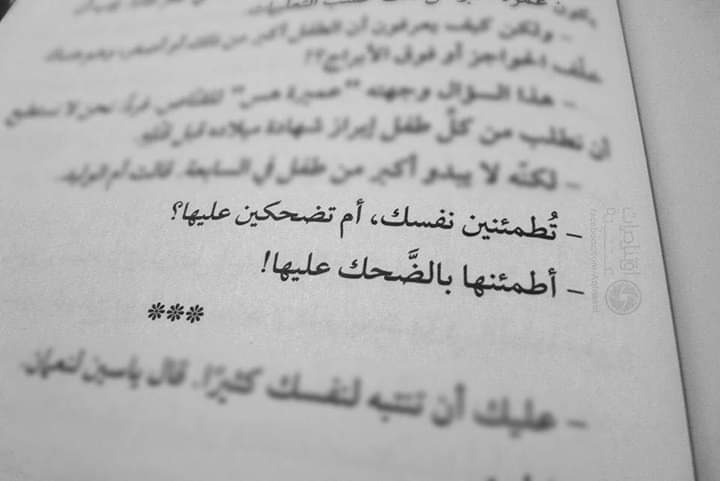 – ولكن كيف يعرفون أن الطفل أكبر من ذلك أو أصغر، وهو
خلف الحواجز أو فوق الأبراج؟!
– هذا السؤال وجهته "عميرة هس" للقنّاص فردّ: نحن لا نستطيع
أن نطلب من كلّ طفل إبراز شهادة ميلاده قبل قتله.
– لكنّه لا يبدو أكبر من طفل في السابعة. قالت أم الوليد.
– تُطمئنين نفسك، أم تضحكين عليها؟
– أطمئنها بالضَّحك عليها!
***
– عليك أن تنتبه لنفسك كثيرًا. قال ياسين لنعمان.
اقتباسات